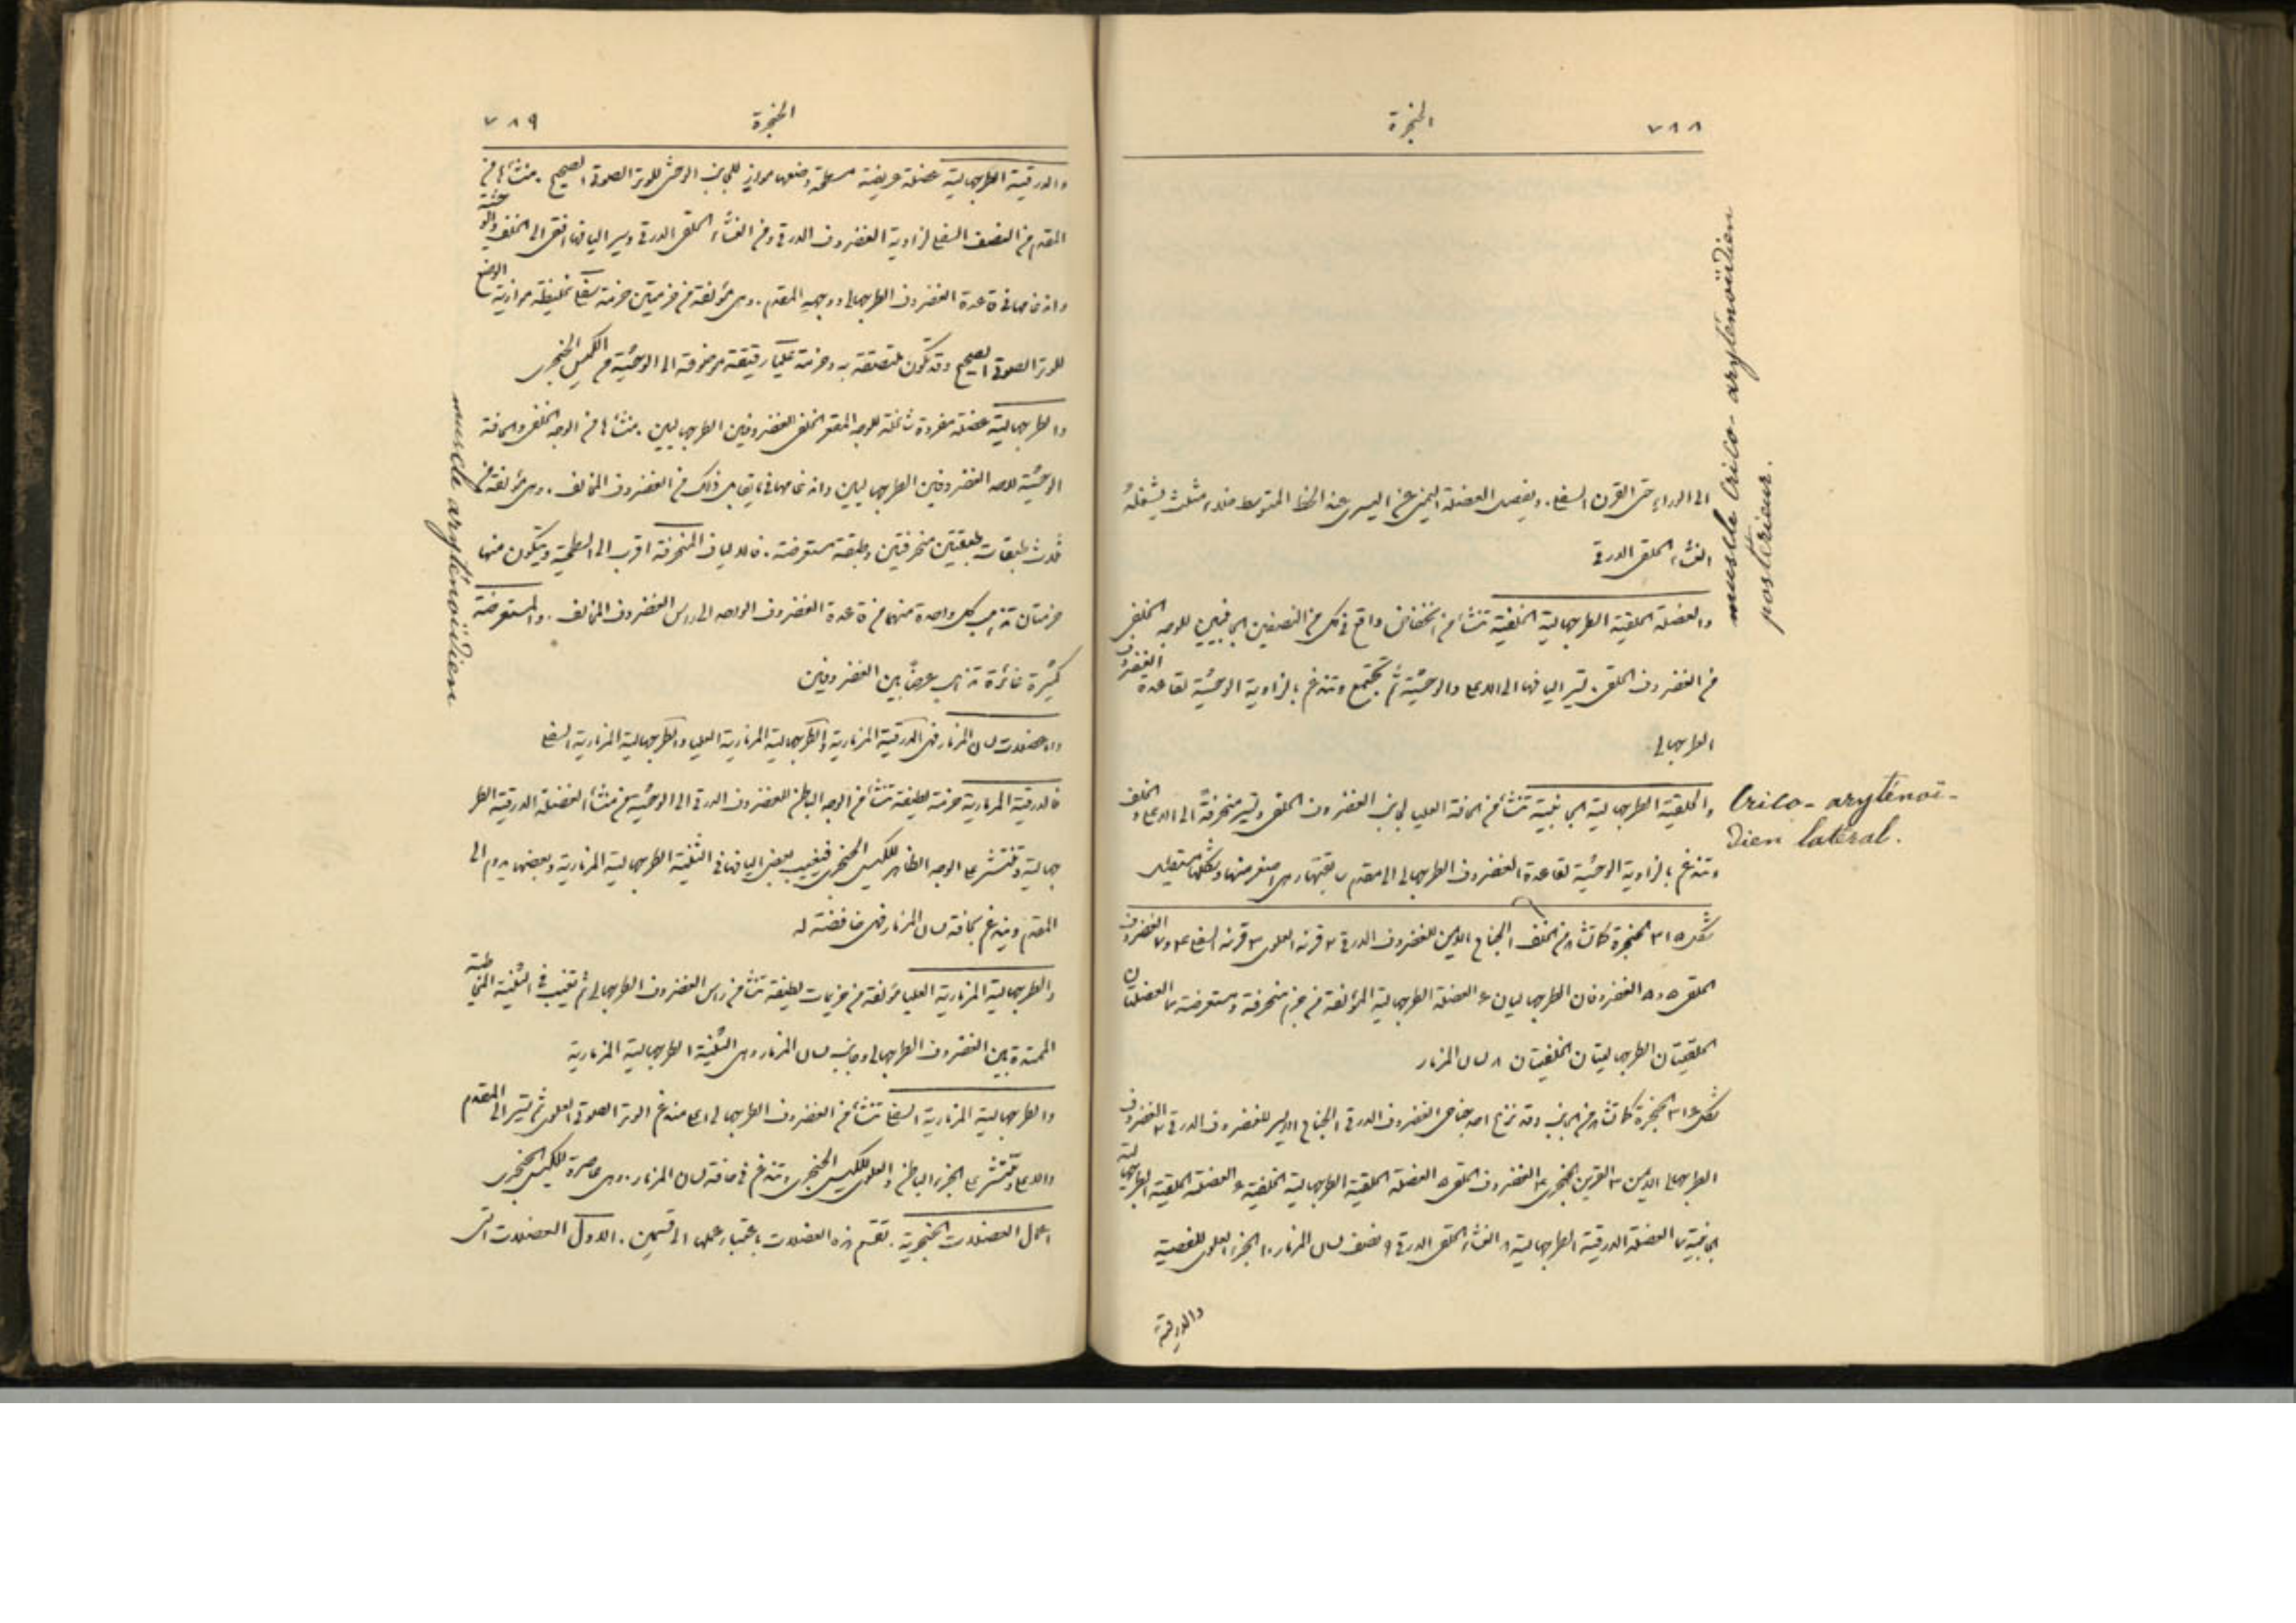 ٧٨٨
الحنجرة
الى الوراء حتى القرن السفلي. ويفصل العضلة اليمنى عن اليسرى عند الخط المتوسط خلاء مثلث يشغله
الغشاء الحلقي الدرقي
والعضلة الحلقية الطرجهالية الخلفية تنشأ من انخفاض واقع في كل من النصفين الجانبيين للوجه الخلفي
من الغضروف الحلقي. تسير اليافها الى الاعلى والوحشية ثم تجتمع وتندغم بالزاوية الوحشية لقاعدة الغضروف
الطرجهالي
والحلقية الطرجهالية الجانبية تنشأ من الحافة العليا لجانب الغضروف الحلقي وتسير منحرفةً الى الاعلى والخلف
وتندغم بالزاوية الوحشية لقاعدة الغضروف الطرجهالي الى مقدم سابقتها وهي اصغر منها وشكلها مستطيل
شكل ٣١٥ الحنجرة كما تشاهد من الخلف ١ الجناح الايمن للغضروف الدرقي ٢ قرنه العلوي ٣ قرنه السفلي ٤ و٧ الغضروف
الحلقي ٥ و٥ الغضروفان الطرجهاليان ٦ العضلة الطرجهالية المؤلفة من حزم منحرفة ومستعرضة ٧ العضلتان
الحلقيتان الطرجهاليتان الخلفيتان ٨ لسان المزمار
شكل ٣١٦ الحنجرة كما تشاهد من الجانب وقد نزع احد جناحي الغضروف الدرقي ١ الجناح الايسر للغضروف الدرقي ٢ الغضروف
الطرجهالي الايمن ٣ القرين الحنجري ٤ الغضروف الحلقي ٥ العضلة الحلقية الطرجهالية الخلفية ٦ العضلة الحلقية الطرجهالية
الجانبية ٧ العضلة الدرقية الطرجهالية ٨ الغشاء الحلقي الدرقي ٩ نصف لسان المزمار ١٠ الجزء العلوي للقصبة
والدرقية
muscle crico-aryténoïdien
postérieur.
Crico-aryténoï-
dien latéral.
٧٨٩
الحنجرة
والدرقية الطرجهالية عضلة عريضة مسطحة وضعها موازٍ للجانب الوحشي للوتر الصوتي الصحيح. منشأها في
المقدم من النصف السفلي لزاوية الغضروف الدرقي ومن الغشاء الحلقي الدرقي وسير اليافها افقي الى الخلف والوحشية
واندغامها في قاعدة الغضروف الطرجهالي ووجهه المقدم. وهي مؤلفة من حزمتين حزمة سفلى غليظة موازية الوضع
للوتر الصوتي الصحيح وقد تكون ملتصقة به وحزمة عليا رقيقة موضوعة الى الوحشية من الكيس الحنجري
والطرجهالية عضلة مفردة شاغلة للوجه المقعر الخلفي للغضروفين الطرجهاليين. منشأها من الوجه الخلفي والحافة
الوحشية لاحد الغضروفين الطرجهاليين واندغامها في ما يقابل ذلك من الغضروف المخالف. وهي مؤلفة من
ثلاث طبقات طبقتين منحرفتين وطبقة مستعرضة. فالالياف المنحرفة اقرب الى السطحية ويتكون منها
حزمتان تذهب كل واحدة منهما من قاعدة الغضروف الواحد الى راس الغضروف المخالف. والمستعرضة
كثيرة غائرة تذهب عرضًا بين الغضروفين
واما عضلات لسان المزمار فهي الدرقية المزمارية والطرجهالية المزمارية العليا والطرجهالية المزمارية السفلى
فالدرقية المزمارية حزمة لطيفة تنشأ من الوجه الباطن للغضروف الدرقي الى الوحشية من منشأ العضلة الدرقية الطر
جهالية وتنتشر على الوجه الظاهر للكيس الحنجري فيغيب بعض اليافها في الثنية الطرجهالية المزمارية وبعضها يدوم الى
المقدم ويندغم بحافة لسان المزمار فهي خافضة له
والطرجهالية المزمارية العليا مؤلفة من حزيمات لطيفة تنشأ من راس الغضروف الطرجهالي ثم تغيب في الثنية المخاطية
الممتدة بين الغضروف الطرجهالي وجانب لسان المزمار وهي الثنية الطرجهالية المزمارية
والطرجهالية المزمارية السفلى تنشأ من الغضروف الطرجهالي اعلى مندغم الوتر الصوتي العلوي ثم تسير الى المقدم
والاعلى وتنتشر على الجزء الباطن والعلوي للكيس الحنجري وتندغم في حافة لسان المزمار. وهي عاصرة للكيس الحنجري
اعمال العضلات الحنجرية. تقسم هذه العضلات باعتبار عملها الى قسمين. الاول العضلات التي
muscle aryténoïdien